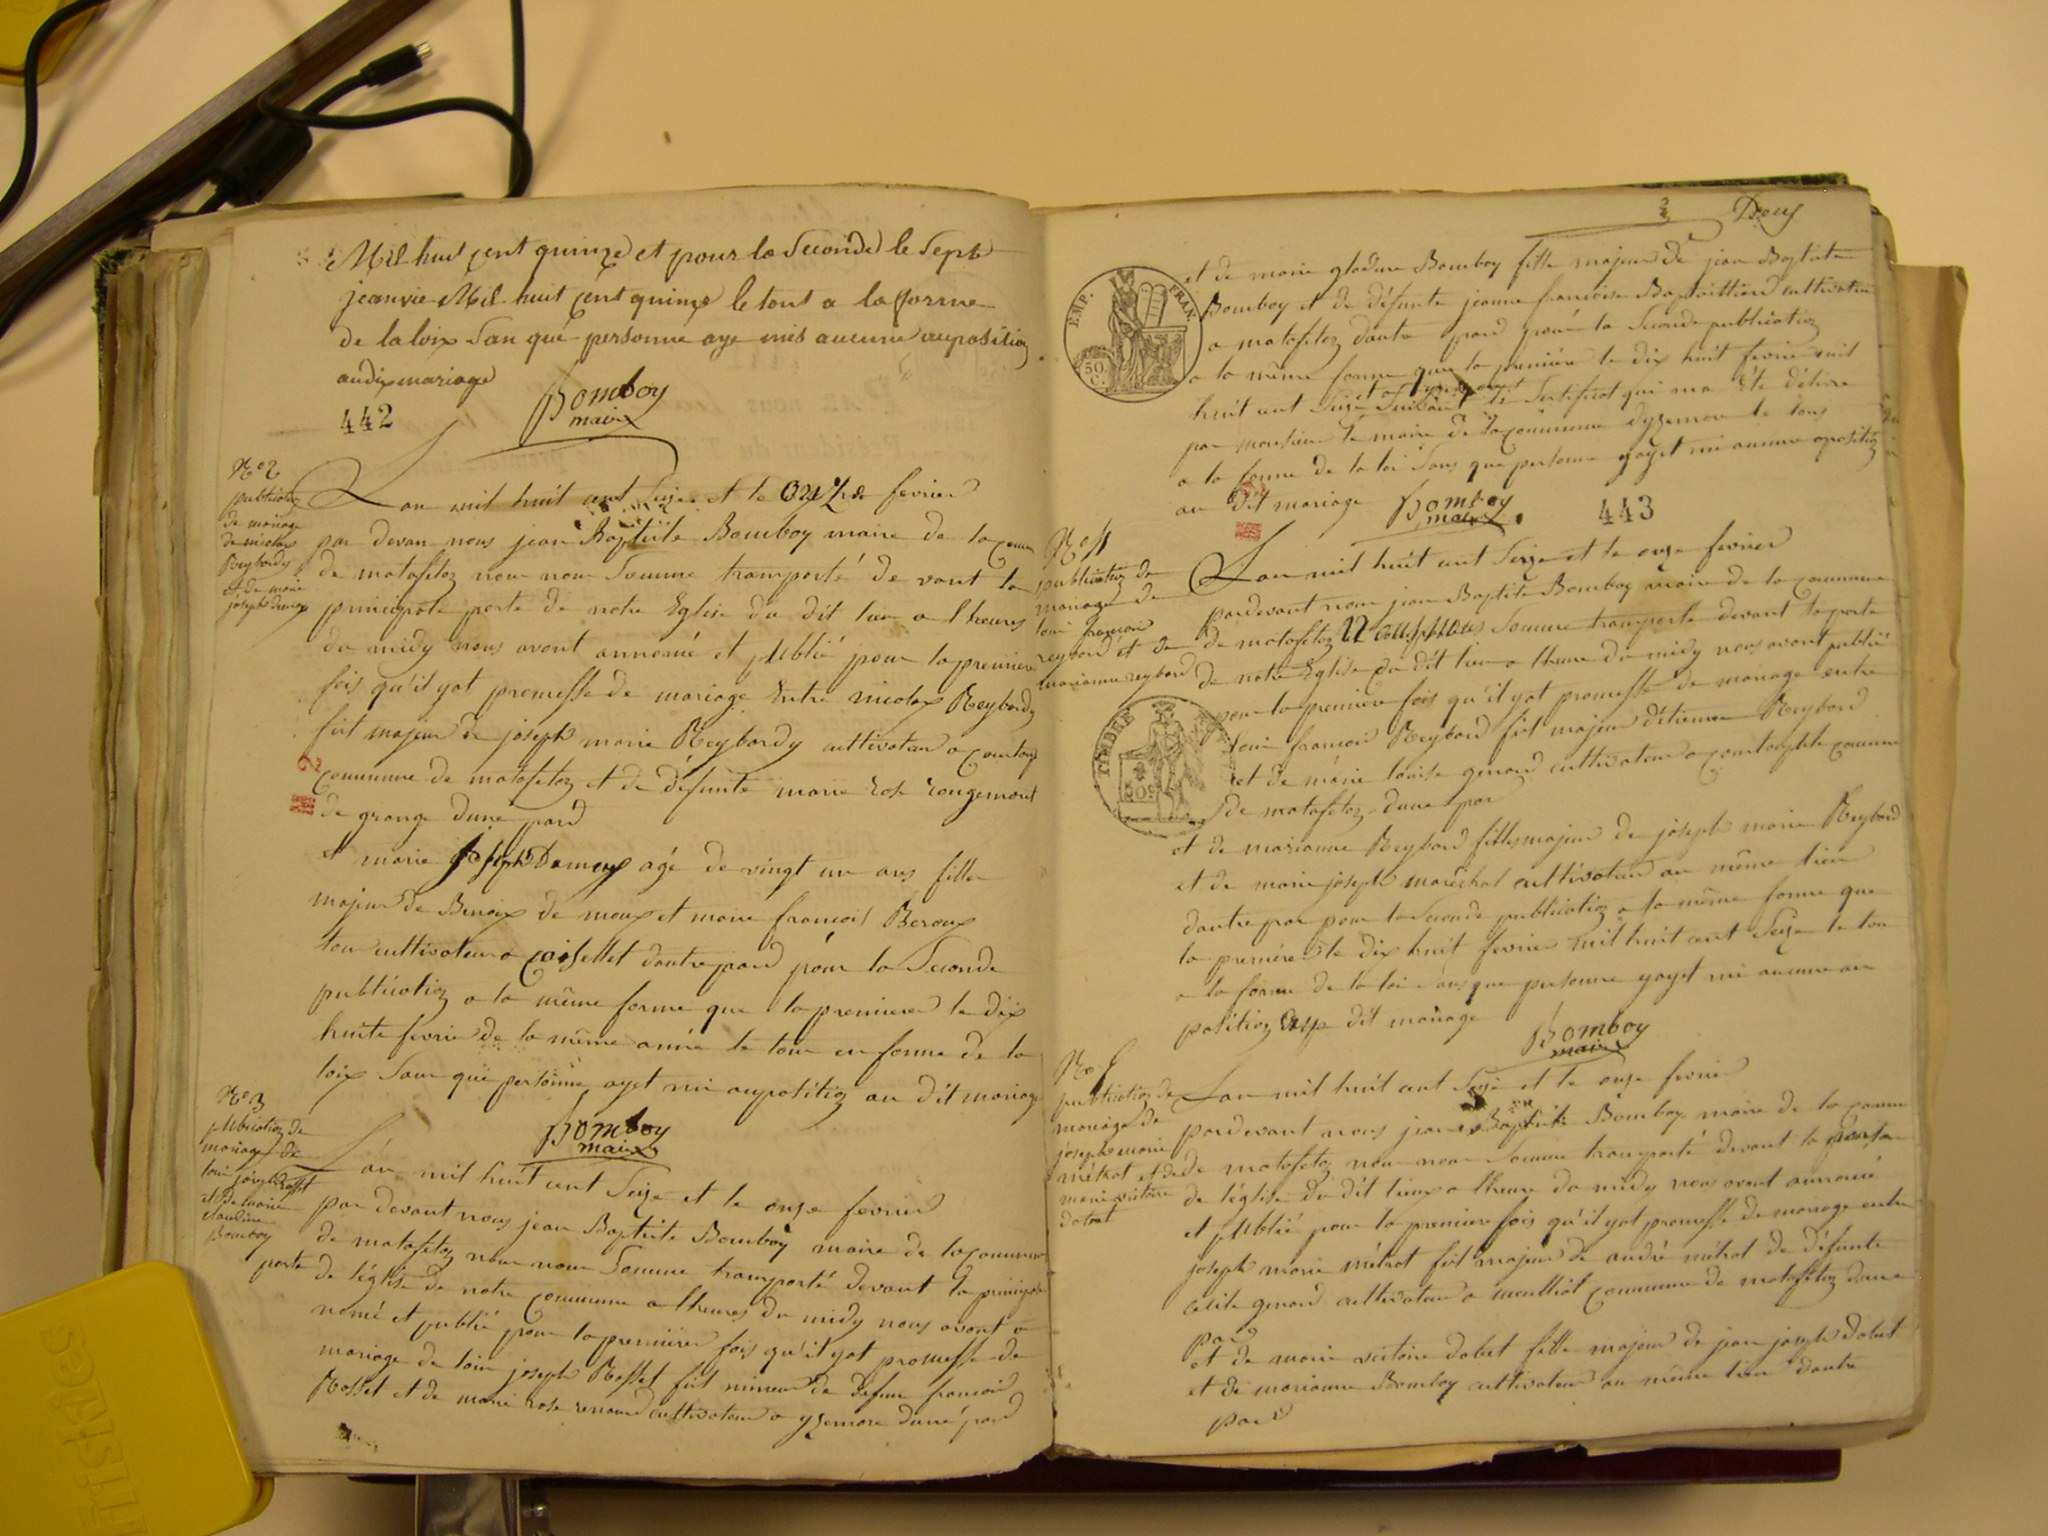 Mil huit cent quinze et pour la Seconde le Sept
jeanvie Mil huit cent quinze le tout a la forme
de la loix San que personne aye mis aucune aupositioz
audix mariage
Bomboy
maire
442
N° 2
publicatioz
de mariage
de nicolas
Reybordy
et de marie
joseph
Lan mil huit cent Seize et le onze fevrier
par devan nous jean Baptiste Bomboy maire de la comm
de matafeloz nous nous Somme transporté de vant la
principale porte de notre Eglise du dit lieu a lheures
du midy nous avont annoncé et publié pour la premiere
fois qu'il yat promesse de mariage Entre nicolas Reybordy
fils majeur de joseph marie Reybordy cultivateur a
commune de matafeloz et de défunte marie rose rougemont
de grange dune pard
et marie joseph Demoux agé de vingt un ans fille
majeur de Benoix de moux et marie francois Beroux
tou cultivateur a Coisellet dautre pard pour la Seconde
publicatioz a la même forme que la premiere le dix
huite fevrie de la même année le tout en forme de la
loix San que personne ayet mi aupositioz au dit mariage
Bomboy
maire
N° 3
publicatioz de
mariage de
loui joseph Rosset
et de marie
Claudine
Bomboy
L'an mil huit cent Seize et le onze fevrier
par devant nous jean Baptiste Bomboy maire de la commune
de matafeloz nous nous Somme transporté devant la principale
porte de léglise de notre commune a lheures du midy nous avont a
noncé et publié pour la premiere fois qu'il yat promesse de
mariage de loui joseph Rosset fils mineur de defun francois
Rosset et de marie rose renaud cultivateur a yzernore dune pard
2
Deux
EMP. FRAN.
50 C.
et de marie Bomboy fille majeur de jean Baptiste
Bomboy et de défunte jeanne francoise cultivateur
a matafeloz dautre pard pour la Seconde publicatioz
a la même forme que la premiere le dix huit fevrie mil
huit cent Seize Suivant le Sertificat qui ma été délivré
par monsieur le maire de la commune dyzernore le tous
a la forme de la loi Sans que personne yayet mi aucune opositioz
au dit mariage
Bomboy
maire
443
N° 4
publicatioz de
mariage de
loui francois
reybord et de
marianne reybord
Lan mil huit cent Seize et le onze fevrier
pardevant nous jean Baptiste Bomboy maire de la commune
de matafeloz nous nous Somme transporté devant la porte
de notre Eglise du dit lieu a lheure du midy nous avont publié
pour la premiere fois qu'il yat promesse de mariage entre
loui francois Reybord fils majeur détienne Reybord
et de marie louise genard cultivateur a commune
de matafeloz dune par
TIMBRE
et de marianne Reybord filles majeur de joseph marie Reybord
et de marie joseph maréchal cultivateur au même lieu
dautre par pour la Seconde publicatioz a la même forme que
la premiere le dix huit fevrier mil huit cent Seize le tou
a la forme de la loi Sans que personne yayet mi aucune au
positioz au dit mariage
Bomboy
maire
N° 5
publicatioz de
mariage de
joseph marie
métrat et de
marie victoire
dabet
Lan mil huit cent Seize et le onze fevrier
pardevant nous jean Baptiste Bomboy maire de la comm
de matafeloz nous nous Somme transporté devant la porte
de léglise du dit lieux a lheure du midy nous avont annoncé
et publié pour la premiere fois qu'il yat promesse de mariage entre
joseph marie métrat fils majeur de andré métrat de défunte
cécile genard cultivateur a meulliat commune de matafeloz dune
par
et de marie victoire dabet fille majeur de jean joseph dabet
et de marianne Bomboy cultivateur au même lieu dautre
pard